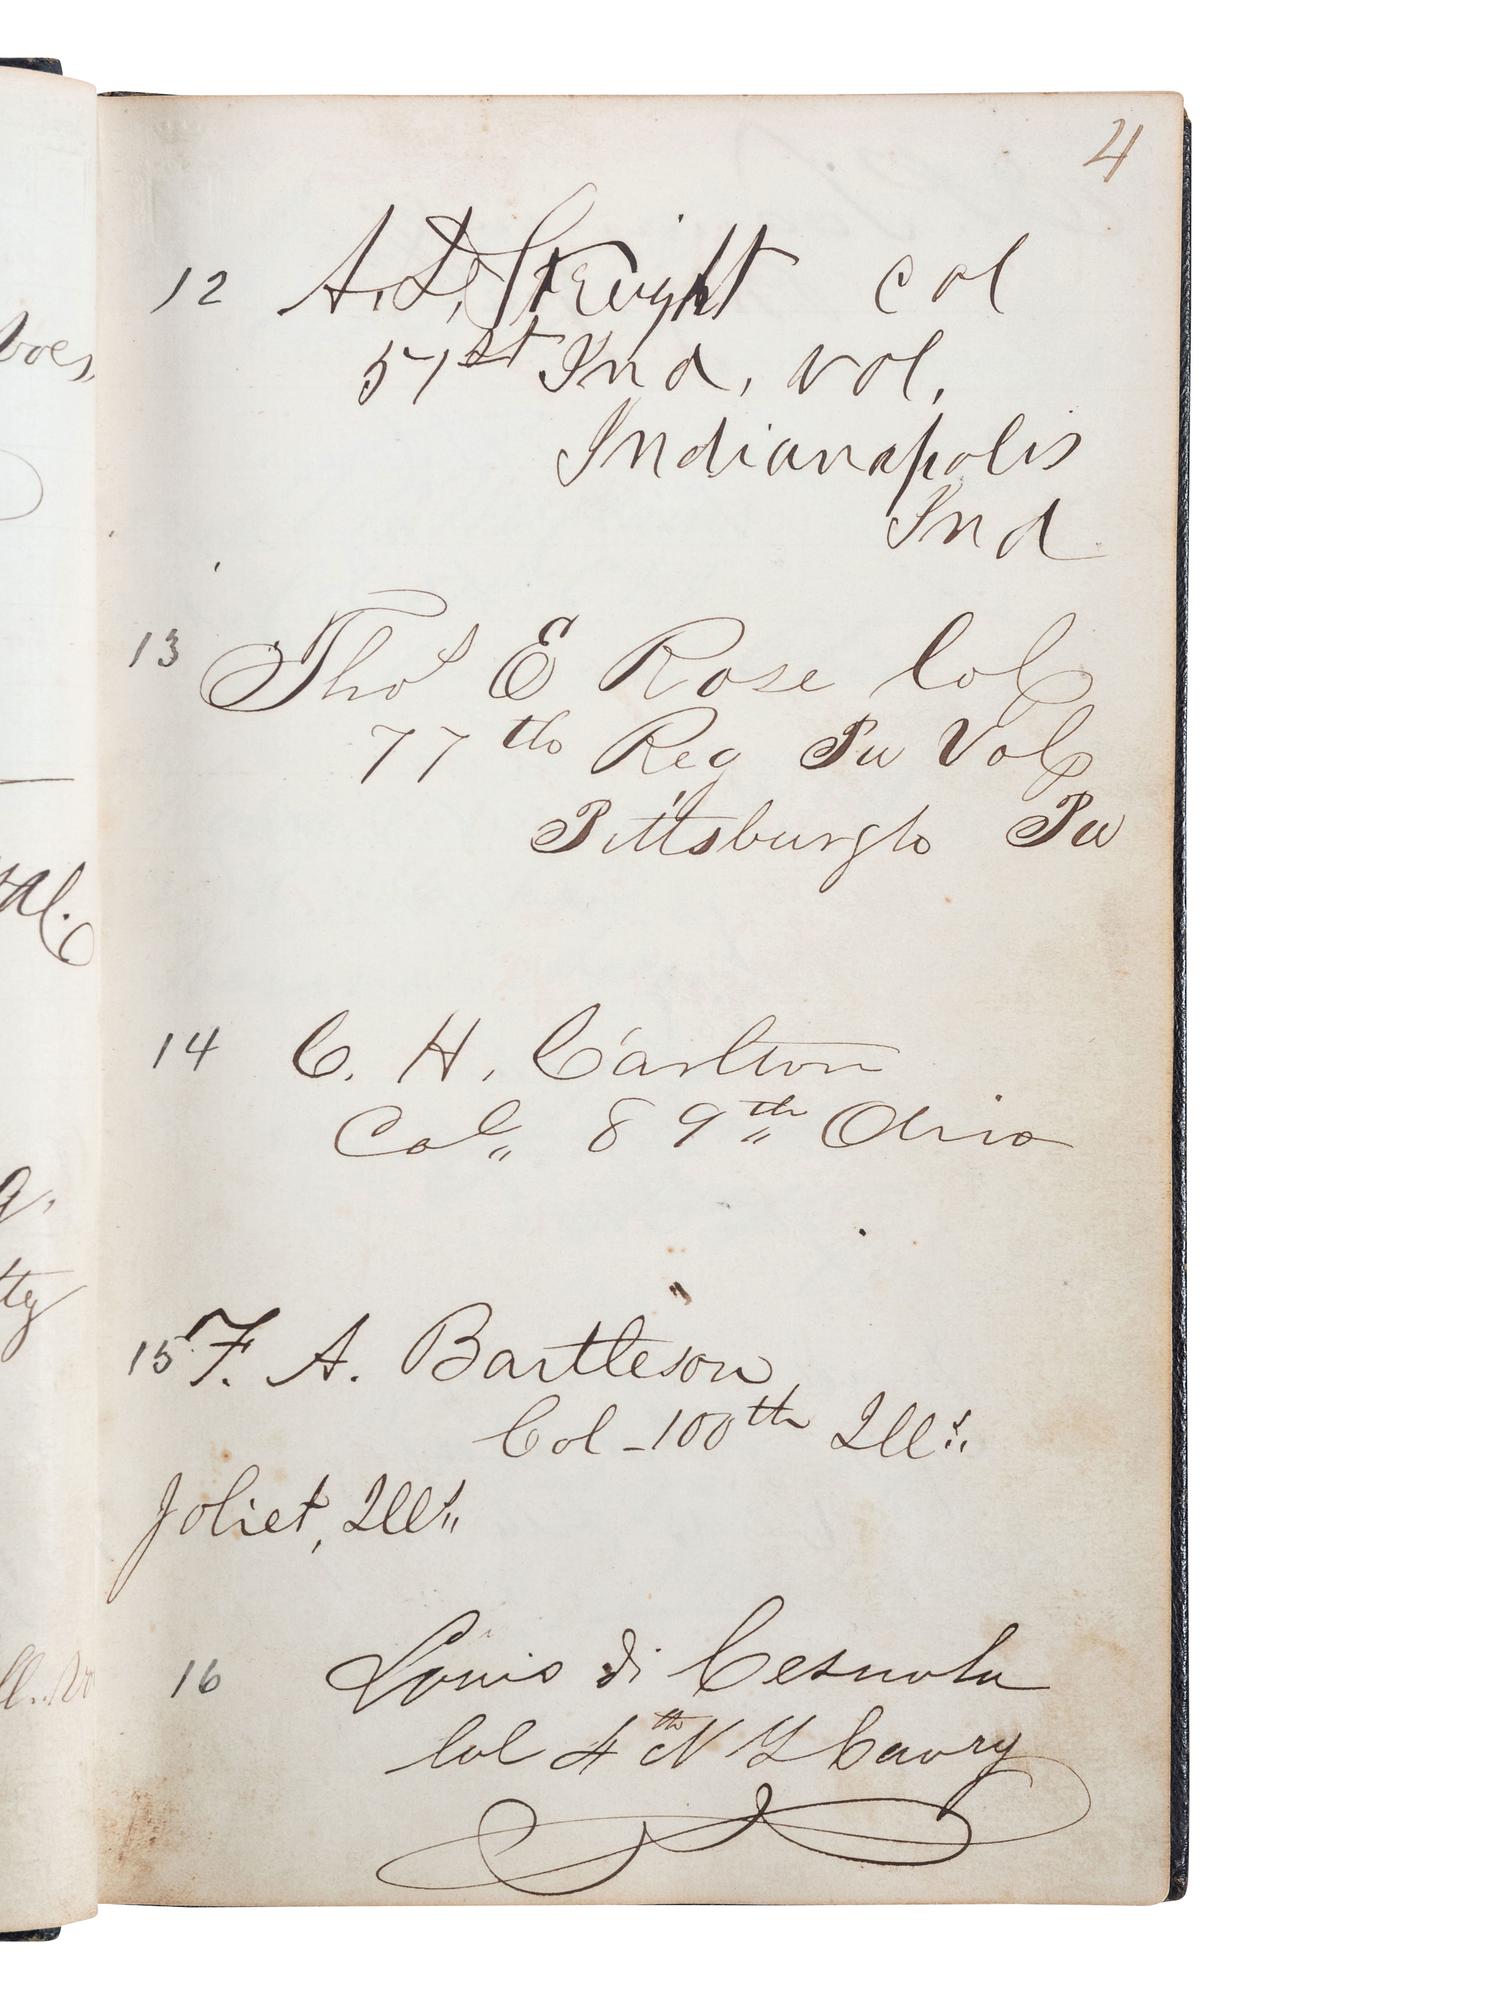 4
12 A. D. Streight col
51st Ind, vol,
Indianapolis
Ind
13 Thos E Rose Col
77th Reg Pa Vol
Pittsburgh Pa
14 C. H. Carlton
Col„ 89th„ Ohio
15 F. A. Bartleson
Col - 100th Ills.
Joliet, Ills„
16 Louis di Cesnola
Col 4th N Y Cavry